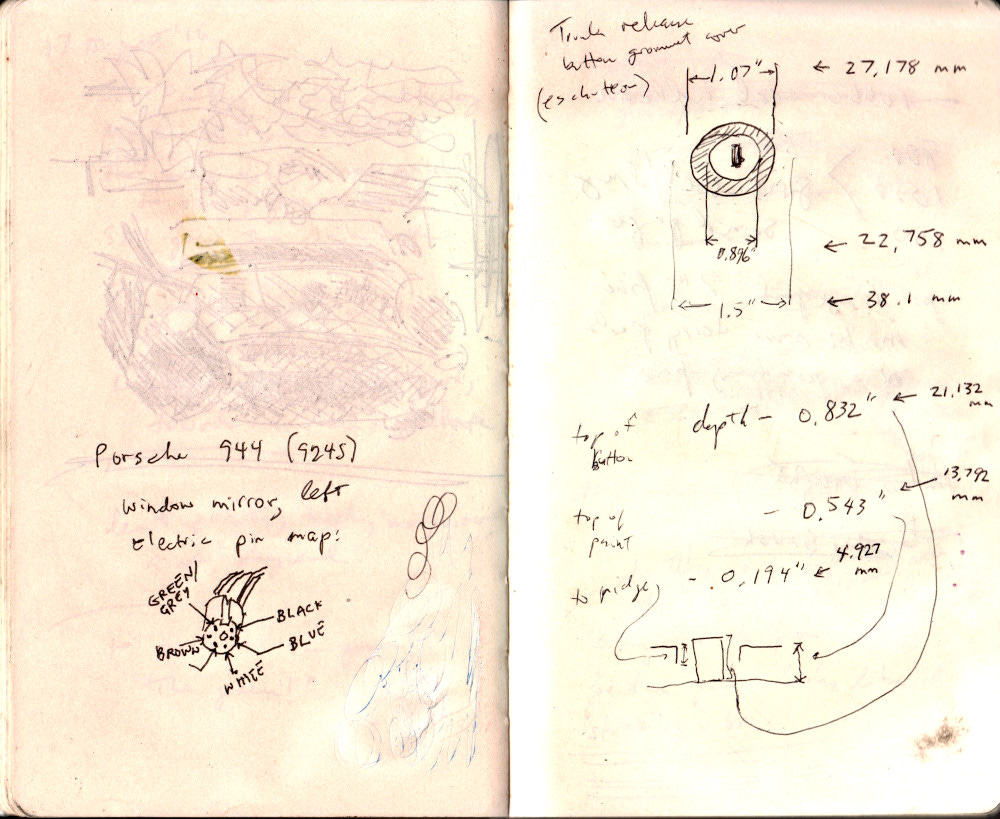 Porsche 944 (924S)
window mirror, left
Electric pin map:
GREEN/
GREY
BLACK
BROWN
BLUE
WHITE
Trunk release
button grommet cover
(eschuteon)
1.07" ← 27,178 mm
0.896" ← 22,758 mm
1.5" ← 38.1 mm
top of
button
depth - 0.832" ← 21,132
mm
top of
paint
- 0.543" ← 13,792
mm
to ridge - .0,194" ← 4.927
mm